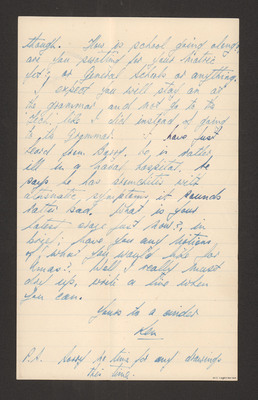 though. How is school going along
are you swotting for your matric
yet, or General Schools or anything.
I expect you will stay on at
the grammar and not go to the
Tech, like I did instead of going
to the Grammar. I have just
heard from Basil, he is rather
ill in a naval hospital. he
says he has bronchitis with
asthmatic symptoms, it sounds
rather sad. What is your
latest craze just now?, in
boys; have you any notions
of what you would like for
Xmas?. Well I really must
dry up, write a line when
you can.
Yours to a cinder
Ken
P.S. Sorry no time for any drawings
this time.